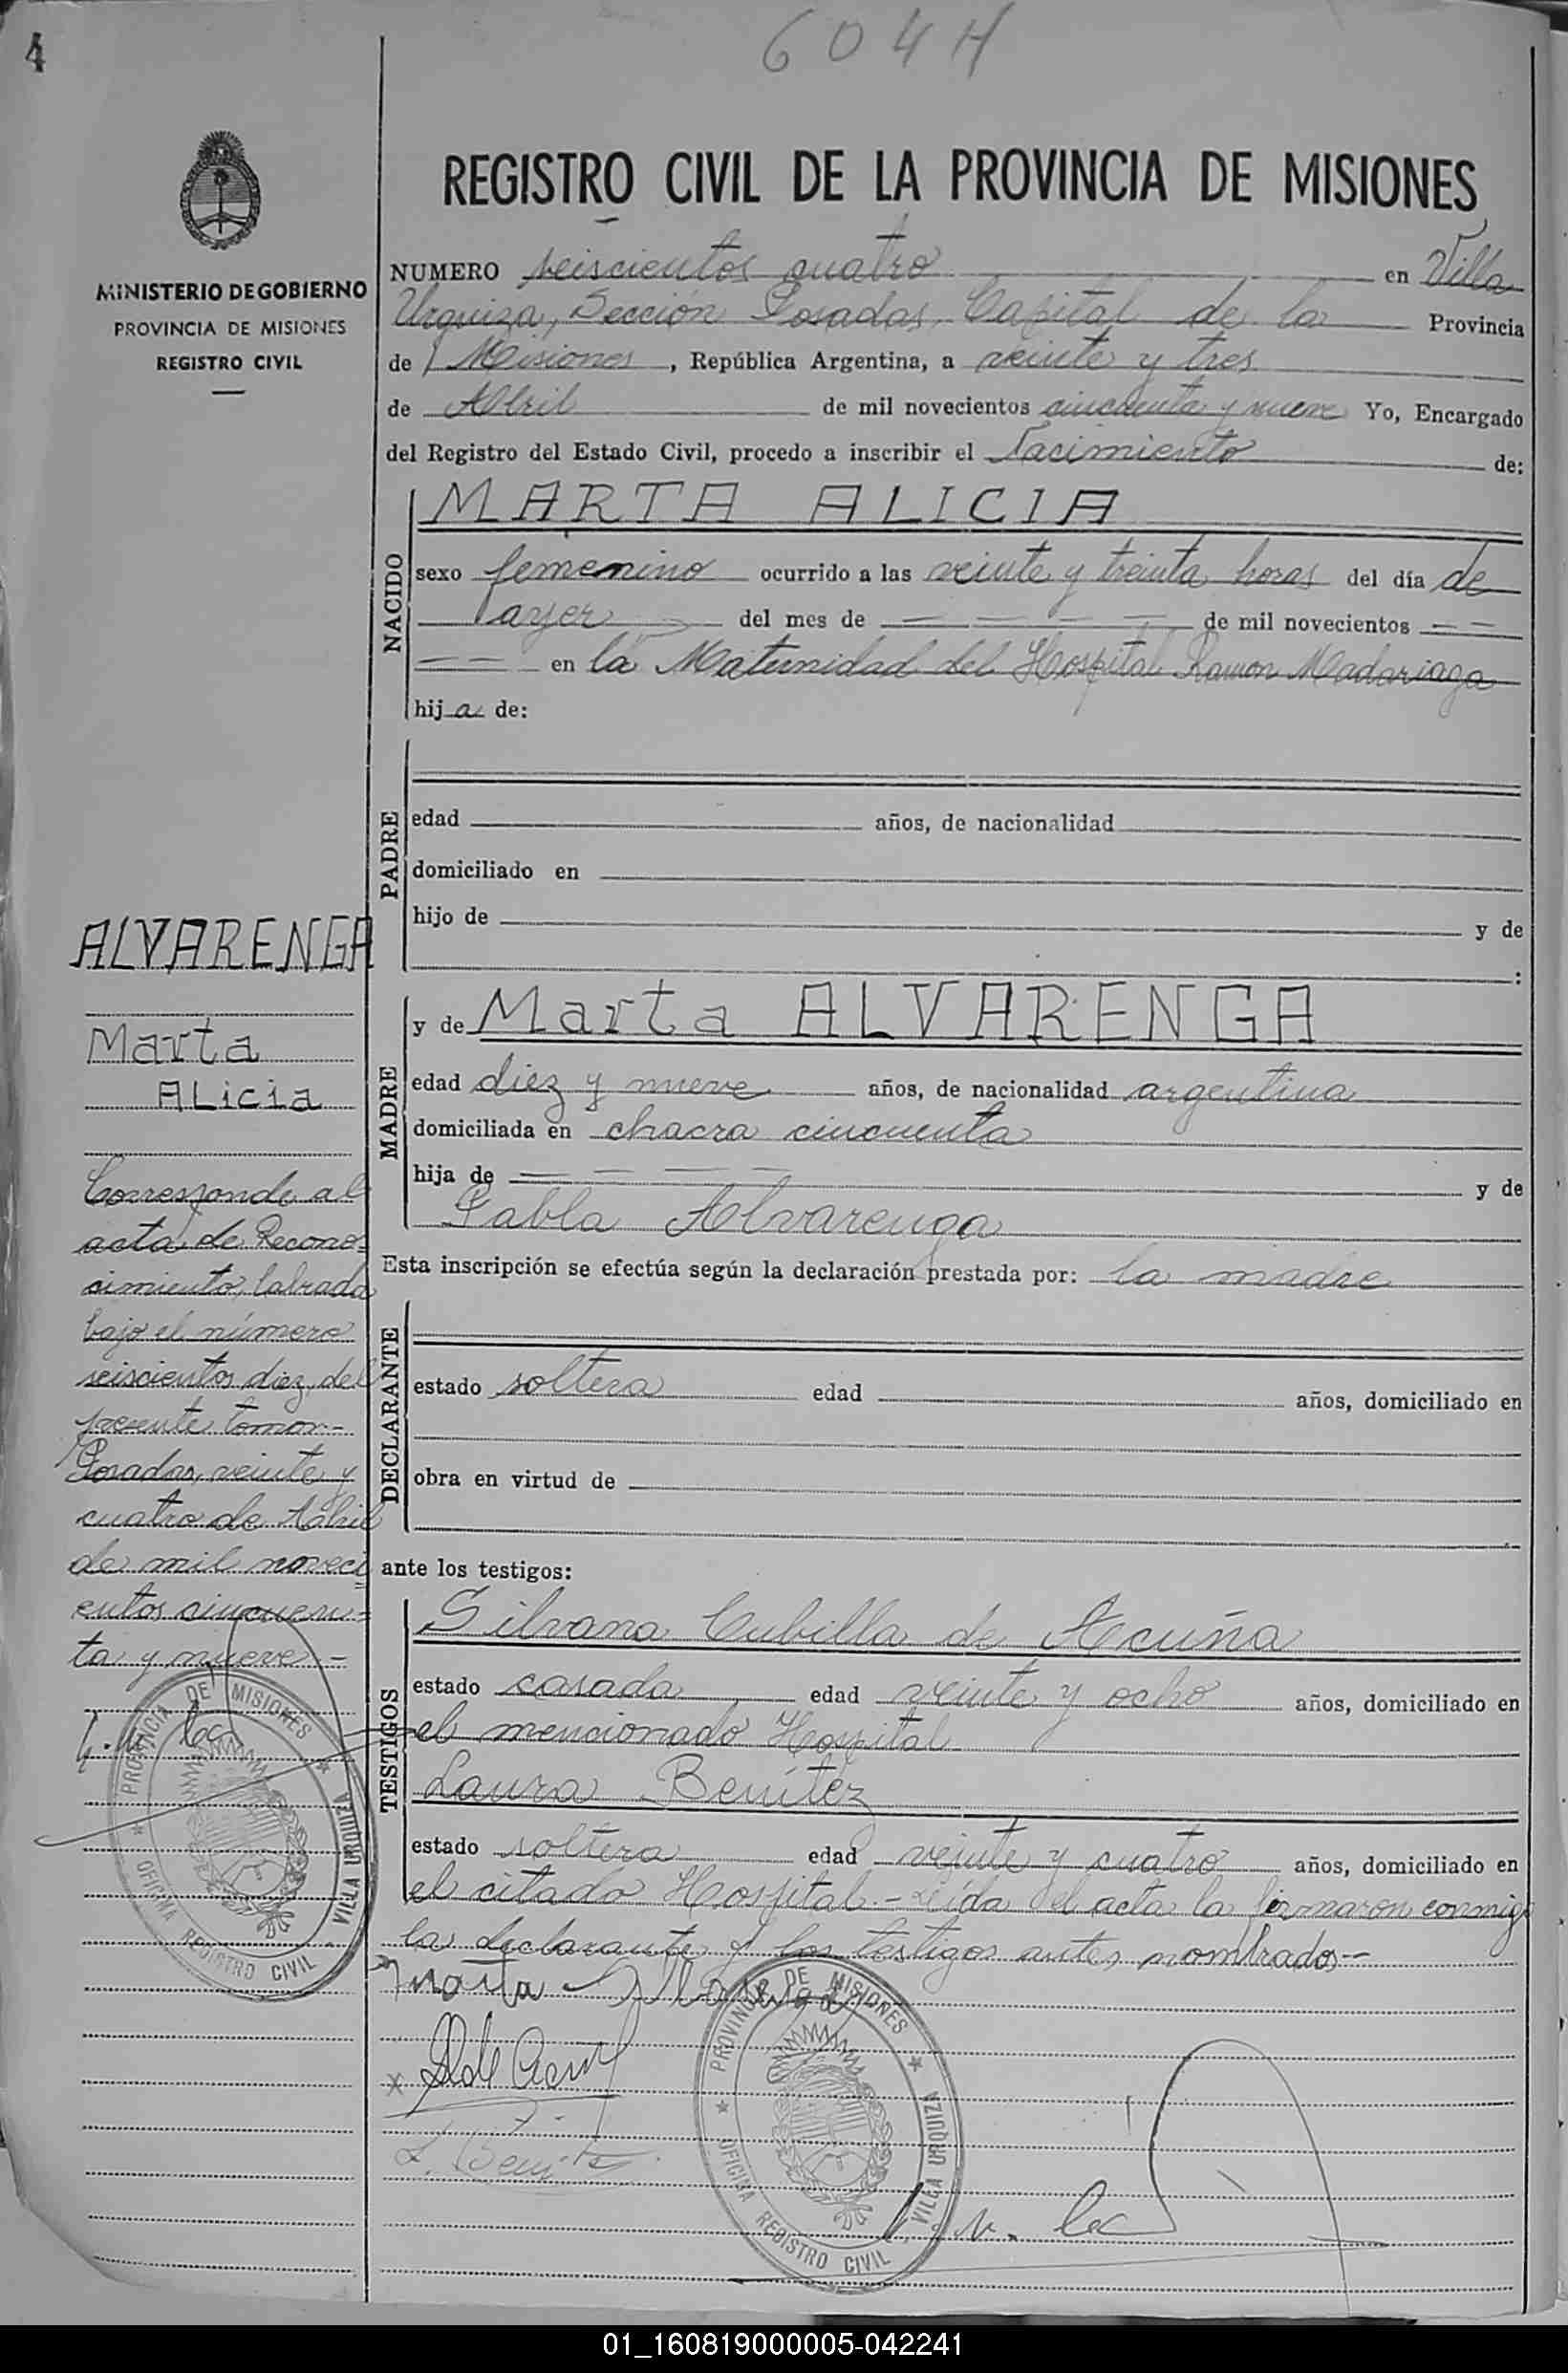 4
604 H
MINISTERIO DE GOBIERNO
PROVINCIA DE MISIONES
REGISTRO CIVIL
REGISTRO CIVIL DE LA PROVINCIA DE MISIONES
NUMERO seiscientos quatro en Villa
Urquiza, Sección Posadas, Capital de la Provincia
de Misiones, República Argentina, a veinte y tres
de Abril de mil novecientos cincuenta y nueve Yo, Encargado
del Registro del Estado Civil, procedo a inscribir el Nacimiento de:
NACIDO
MARTA ALICIA
sexo femenino ocurrido a las veinte y treinta horas del día de
ayer del mes de — — — — de mil novecientos — —
— — en la Maternidad del Hospital Ramon Madariaga
hija de:
PADRE
edad años, de nacionalidad
domiciliado en
hijo de y de
:
MADRE
y de Marta ALVARENGA
edad diez y nueve años, de nacionalidad argentina
domiciliada en chacra cincuenta
hija de — — — — y de
Pabla Alvarenga
Esta inscripción se efectúa según la declaración prestada por: la madre
DECLARANTE
estado soltera edad años, domiciliado en
obra en virtud de
ante los testigos:
TESTIGOS
Silvana Cubilla de Acuña
estado casada edad veinte y ocho años, domiciliado en
el mencionado Hospital
Laura Benítez
estado soltera edad veinte y cuatro años, domiciliado en
el citado Hospital.- Leída el acta la firmaron conmigo
la declarante y los testigos antes nombrados.-
Marta Alvarenga
x S de Acuña
L. Benitez
PROVINCIA DE MISIONES
OFICINA REGISTRO CIVIL
VILLA URQUIZA
ALVARENGA
Marta
ALicia
Corresponde al
acta de Recono=
cimiento, labrada
bajo el número
seiscientos diez, del
presente tomo.-
Posadas, veinte y
cuatro de Abril
de mil noveci
entos cincuen=
ta y nueve.-
PROVINCIA DE MISIONES
OFICINA REGISTRO CIVIL
VILLA URQUIZA
01_160819000005-042241